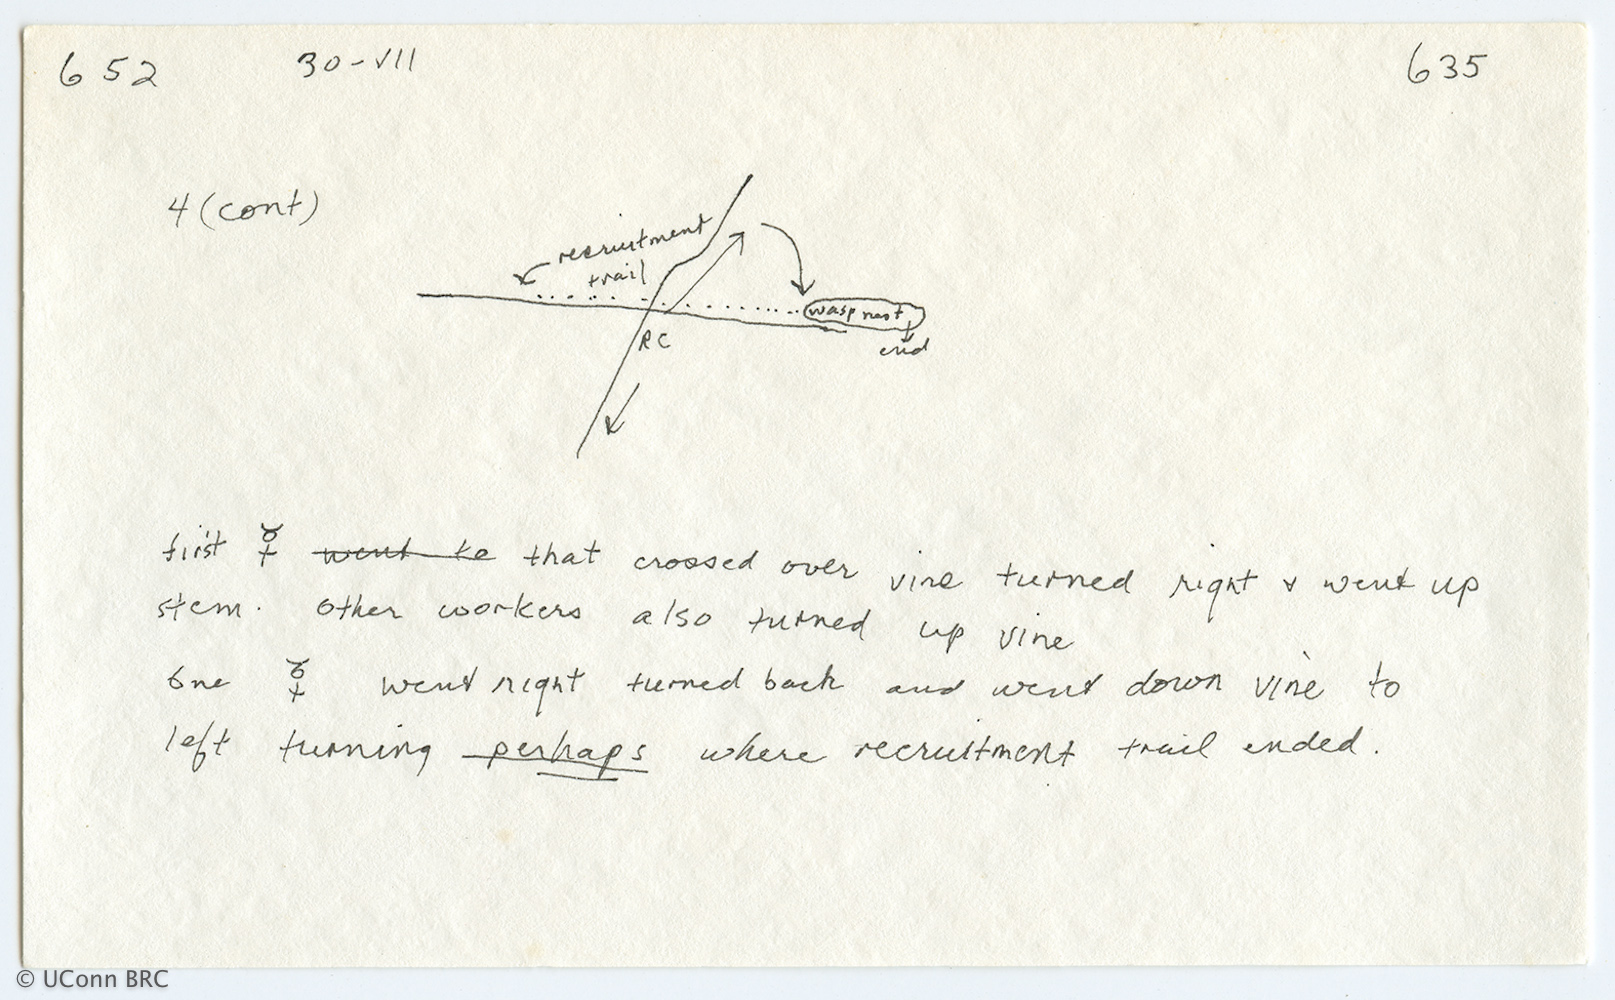 652 30-VII 635
4 (cont)
recruitment
trail
wasp nest
RC
end
first ☿ went to that crossed over vine turned right & went up
stem. Other workers also turned up vine
One ☿ went right turned back and went down vine to
left turning perhaps where recruitment trail ended.
© UConn BRC